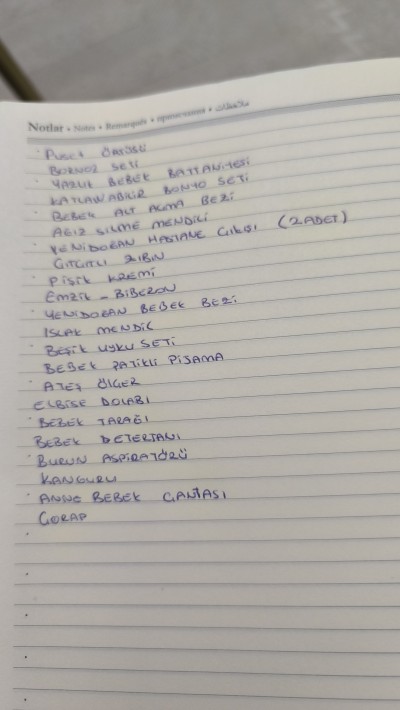 Notlar • Notes • Remarques • примечания • ملاحظات
PUSET ÖRTÜSÜ
BORNOZ SETİ
YAZLIK BEBEK BATTANİYESİ
KATLANABİLİR BANYO SETİ
BEBEK ALT AÇMA BEZİ
AĞIZ SİLME MENDİLİ
YENİDOĞAN HASTANE ÇIKIŞI (2 ADET)
ÇITÇITLI ZIBIN
PİŞİK KREMİ
EMZİK - BİBERON
YENİDOĞAN BEBEK BEZİ
ISLAK MENDİL
BEŞİK UYKU SETİ
BEBEK PATİKLİ PİJAMA
ATEŞ ÖLÇER
ELBİSE DOLABI
BEBEK TARAĞI
BEBEK DETERJANI
BURUN ASPİRATÖRÜ
KANGURU
ANNE BEBEK ÇANTASI
ÇORAP